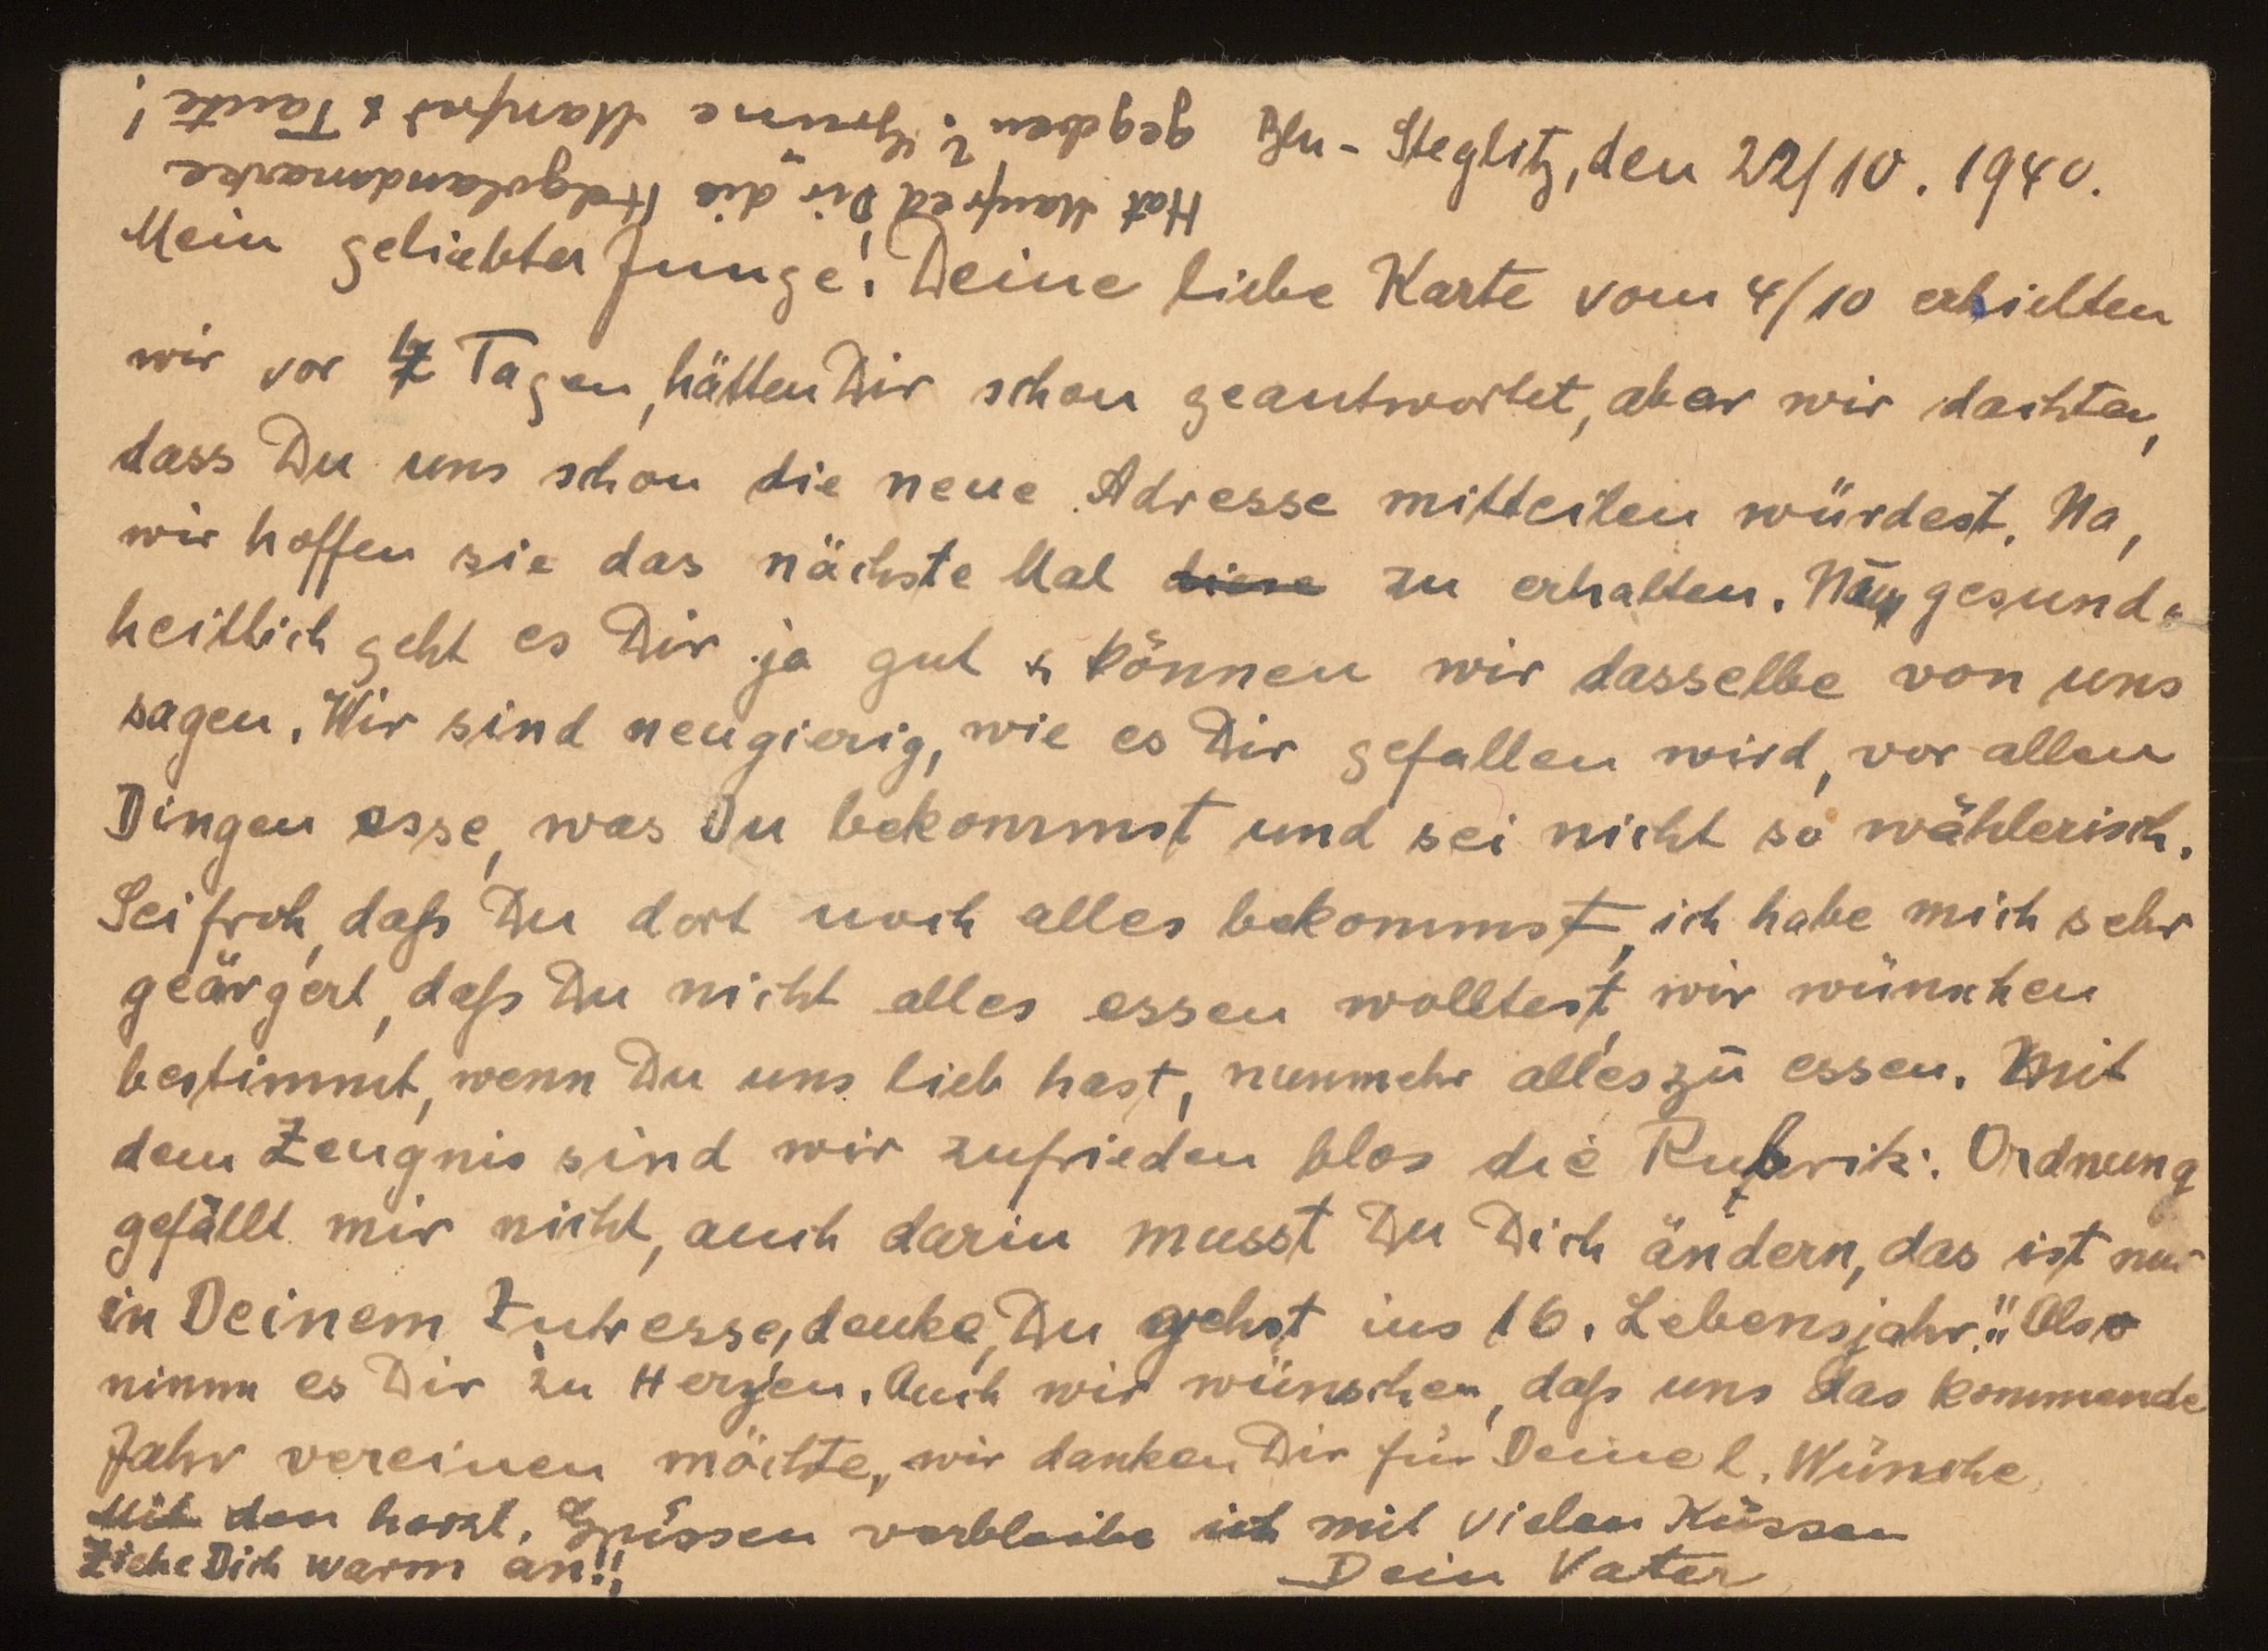 Bln - Steglitz, den 22/10. 1940.
Mein geliebter Junge! Deine liebe Karte vom 4/10 erhielten
wir vor Tagen, hätten Dir schon geantwortet, aber wir dachten,
dass Du uns schon die neue Adresse mitteilen würdest. Na,
wir hoffen sie das nächste Mal diese zu erhalten. Nun gesund-
heitlich geht es Dir ja gut & können wir dasselbe von uns
sagen. Wir sind neugierig, wie es Dir gefallen wird, vor allen
Dingen esse, was Du bekommst und sei nicht so wählerisch.
Sei froh, daß Du dort noch alles bekommst, ich habe mich sehr
geärgert, daß Du nicht alles essen wolltest, wir wünschen
bestimmt, wenn Du uns lieb hast, nunmehr alles zu essen. Mit
dem Zeugnis sind wir zufrieden blos die Rubrik: Ordnung
gefällt mir nicht, auch darin musst Du Dich ändern, das ist nur
in Deinem Intresse, denke, Du gehst ins 16. Lebensjahr!! Also
nimm es Dir zu Herzen. Auch wir wünschen, daß uns das kommende
Jahr vereinen möchte, wir danken Dir für Deine l. Wünsche
Mit den herzl. Grüssen verbleibe ich mit vielen Küssen
Ziehe Dich warm an!! Dein Vater
Hat Manfred Dir die Helgolandmarke
gegeben? Manfred & Tante!